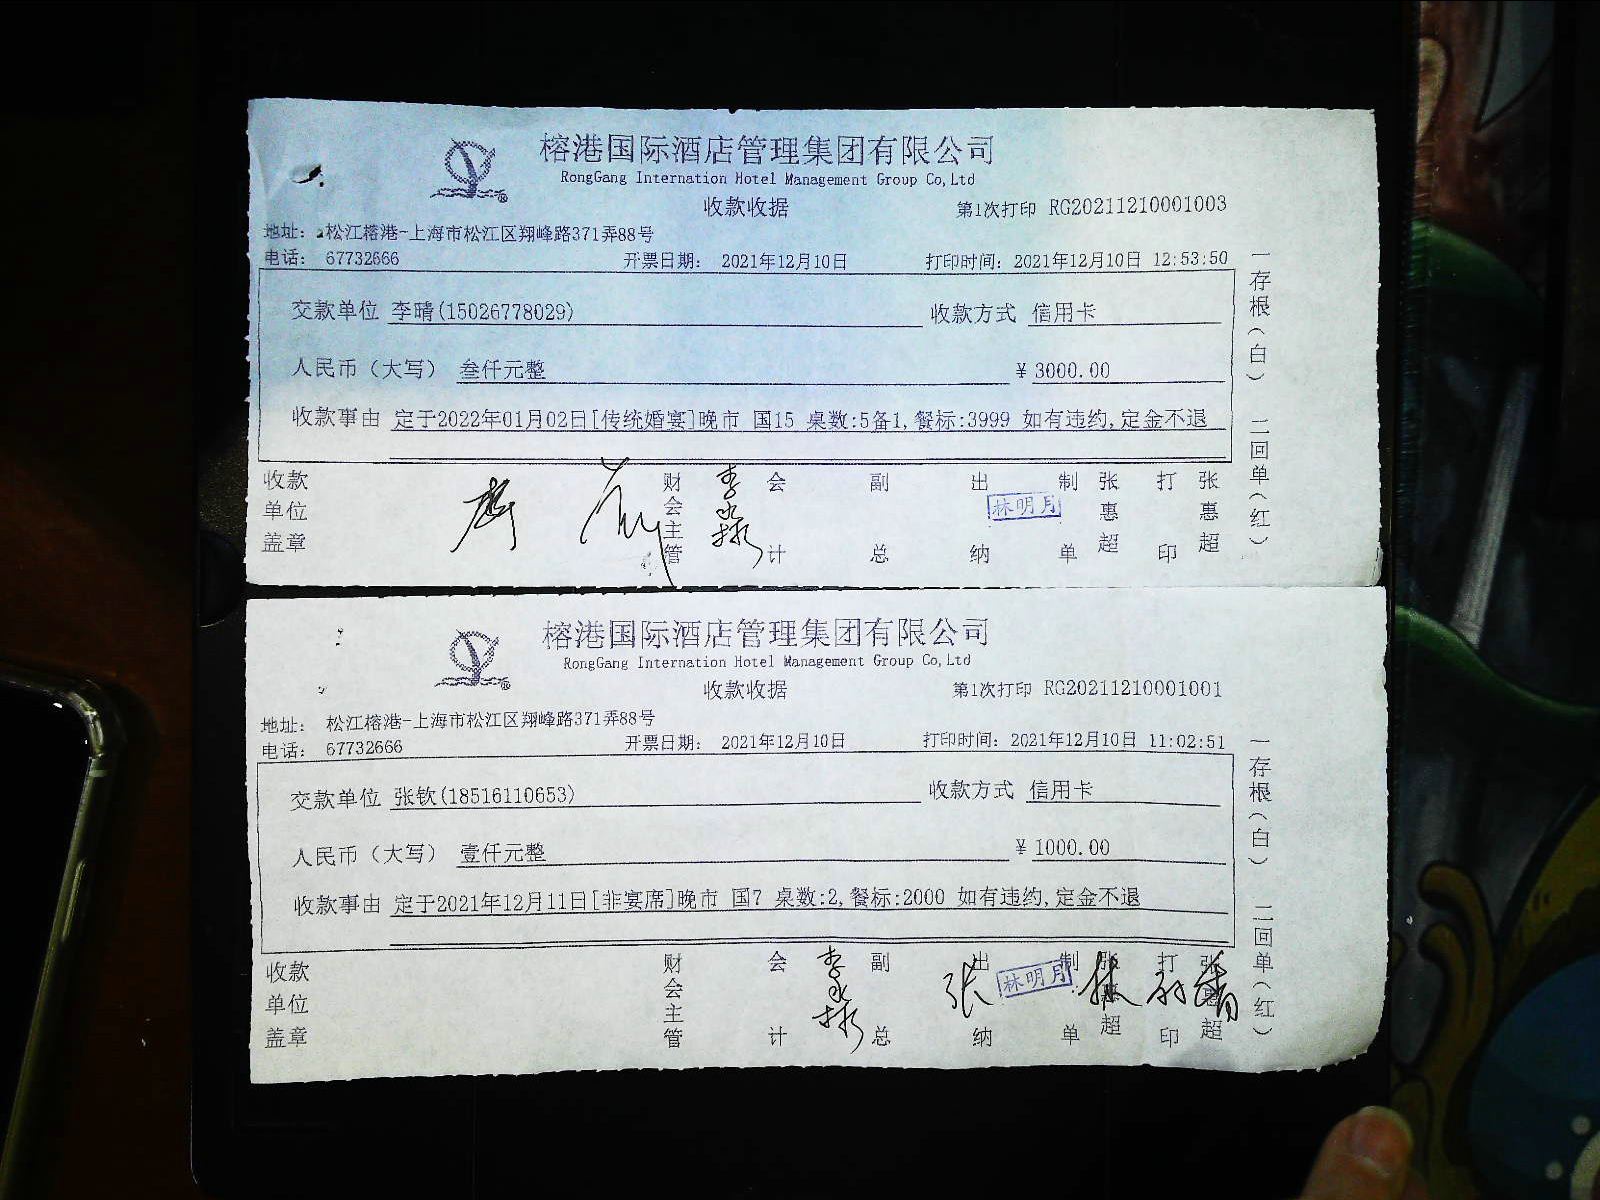 榕港国际酒店管理集团有限公司
RongGang Internation Hotel Management Group Co,Ltd
收款收据
第1次打印 RG20211210001003
地址： 松江榕港-上海市松江区翔峰路371弄88号
电话： 67732666 开票日期： 2021年12月10日 打印时间：2021年12月10日 12:53:50
交款单位 李晴(15026778029) 收款方式 信用卡
人民币（大写） 叁仟元整 ￥3000.00
收款事由 定于2022年01月02日[传统婚宴]晚市 国15 桌数:5备1,餐标:3999 如有违约,定金不退
一存根（白） 二回单（红）
收款单位盖章 财会主管 会计 副总 出纳 林明月 制单 张惠超 打印 张惠超
榕港国际酒店管理集团有限公司
RongGang Internation Hotel Management Group Co,Ltd
收款收据
第1次打印 RG20211210001001
地址： 松江榕港-上海市松江区翔峰路371弄88号
电话： 67732666 开票日期： 2021年12月10日 打印时间：2021年12月10日 11:02:51
交款单位 张钦(18516110653) 收款方式 信用卡
人民币（大写） 壹仟元整 ￥1000.00
收款事由 定于2021年12月11日[非宴席]晚市 国7 桌数:2,餐标:2000 如有违约,定金不退
一存根（白） 二回单（红）
收款单位盖章 财会主管 会计 副总 出纳 林明月 制单 张惠超 打印 张惠超